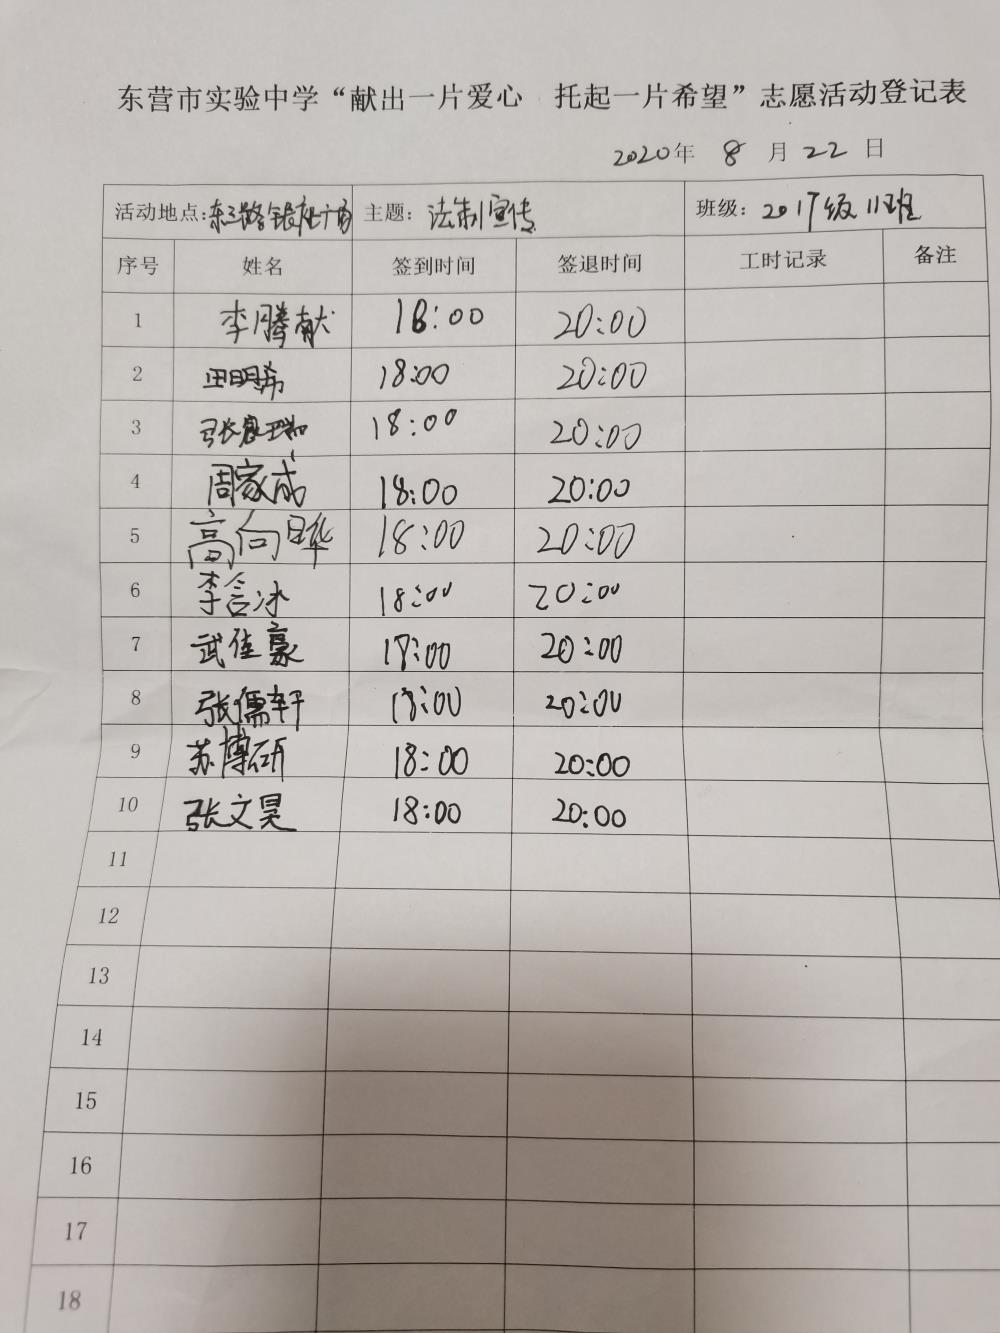 东营市实验中学“献出一片爱心 托起一片希望”志愿活动登记表
2020年 8 月 22 日
活动地点:东三路银座广场 主题: 法制宣传 班级: 2017级11班
序号 姓名 签到时间 签退时间 工时记录 备注
1 李腾献 18:00 20:00
2 田明希 18:00 20:00
3 张宸瑞 18:00 20:00
4 周家成 18:00 20:00
5 高向晔 18:00 20:00
6 李含冰 18:00 20:00
7 武佳豪 18:00 20:00
8 张儒轩 18:00 20:00
9 苏博研 18:00 20:00
10 张文昊 18:00 20:00
11
12
13
14
15
16
17
18